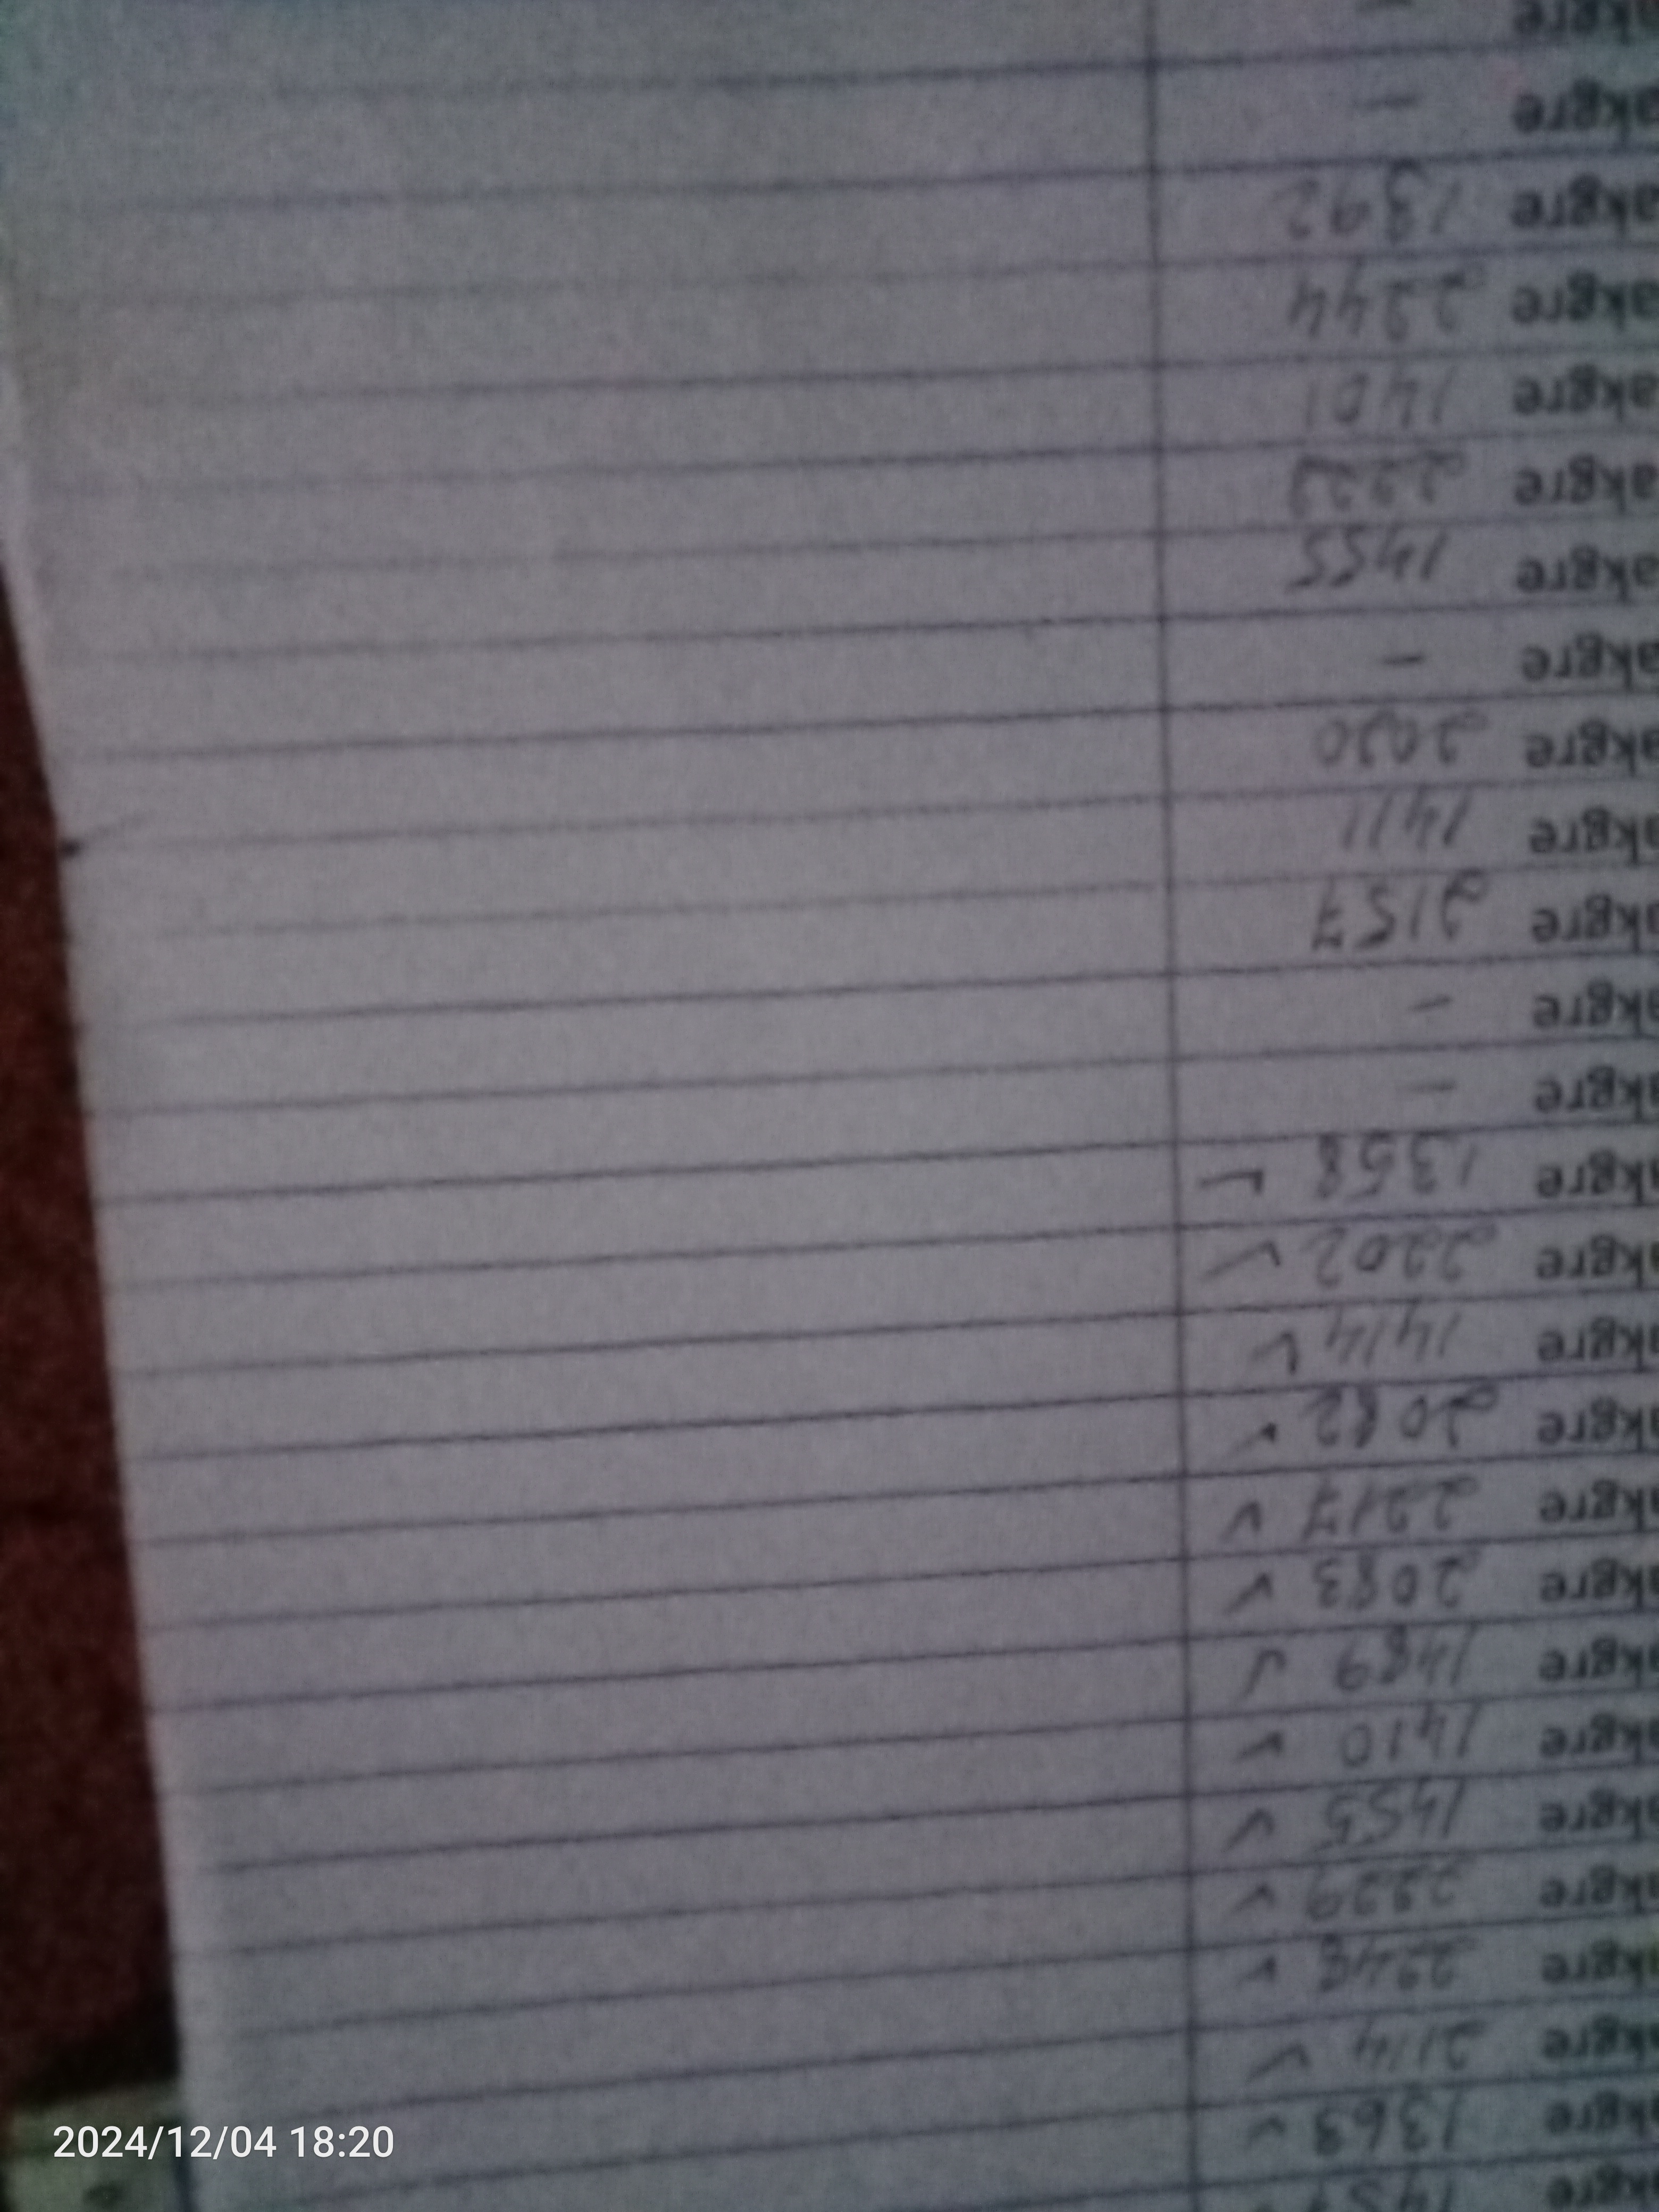 akgre
akgre 1363 ✓
akgre 2114 ✓
akgre 2248 ✓
akgre 2229 ✓
akgre 1455 ✓
akgre 1410 ✓
akgre 1489 ✓
akgre 2083 ✓
akgre 2217 ✓
akgre 2082 ✓
akgre 1414 ✓
akgre 2202 ✓
akgre 1358 ✓
akgre -
akgre -
akgre 2157
akgre 1411
akgre
akgre -
akgre 1455
akgre
akgre 1401
akgre 2244
akgre 1392
akgre -
akgre -
2024/12/04 18:20